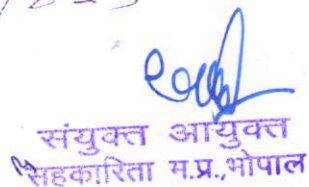 संयुक्त आयुक्त
सहकारिता म.प्र.,भोपाल